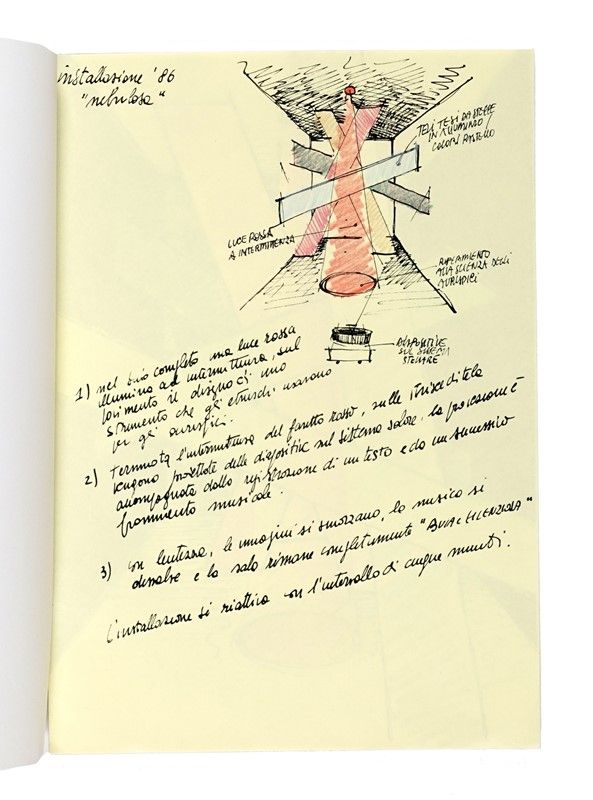 installazione '86
"nebulosa"
TELI TESI DA STOFFE
IN ALLUMINIO /
COLORI PASTELLO
LUCE ROSSA
A INTERMITTENZA
RIFERIMENTO
ALLA SCIENZA DEGLI
AURUSPICI
DIAPOSITIVE
SUL SISTEMA
STELLARE
1) nel buio completo una luce rossa
illumina ad intermittenza, sul
pavimento il disegno di uno
strumento che gli etruschi usavano
per gli aurispici.
2) Terminata l'intermittenza del faretto rosso, sulle strisce di tela
vengono proiettate delle diapositive sul sistema solare. la proiezione è
accompagnata dalla registrazione di un testo e da un successivo
frammento musicale.
3) con lentezza, le immagini si smorzano, la musica si
dissolve e la sala rimane completamente "BUIA E SILENZIOSA"
L'installazione si riattiva con l'intervallo di cinque minuti.